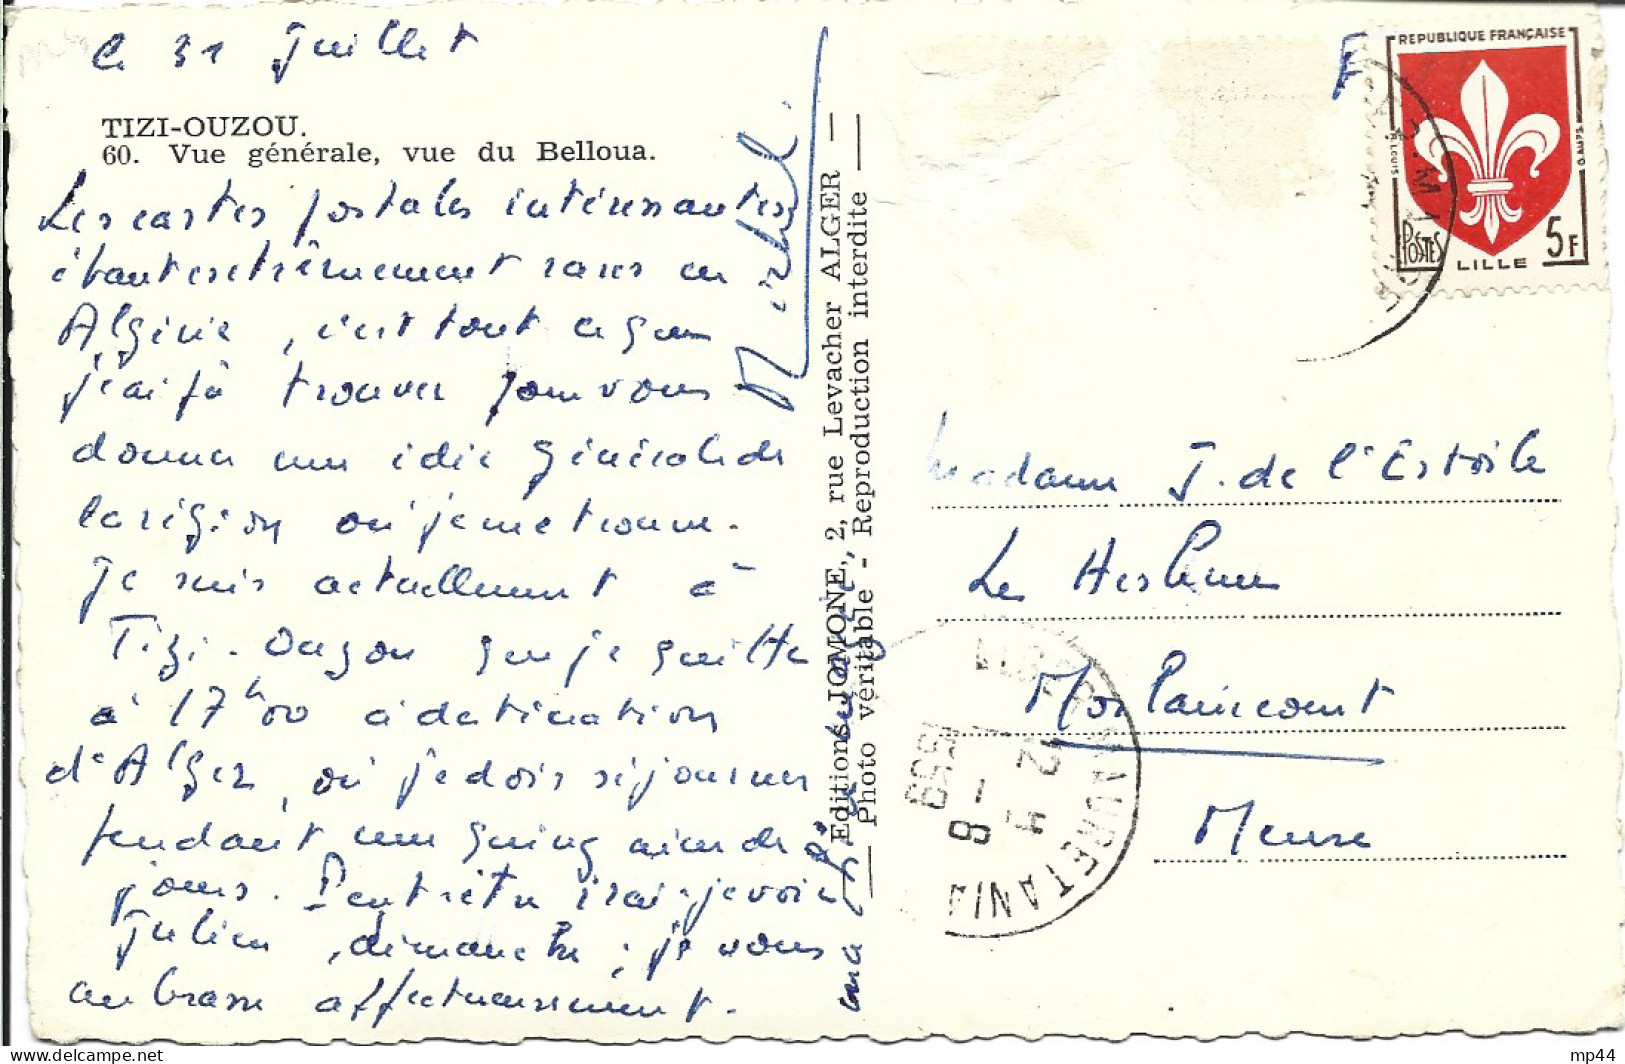 le 31 Juillet
TIZI-OUZOU.
60. Vue générale, vue du Belloua.
Les cartes postales intéressantes
étant extrêmement rares en
Algérie, c'est tout ce que
j'ai pû trouver pour vous
donner une idée générale de
la région où je me trouve.
Je suis actuellement à
Tizi-Ouzou que je quitte
à 17h00 à destination
d'Alger, où je dois séjourner
pendant une quinzaine de
jours. Peut-être irai-je voir
Julien, dimanche ; je vous
embrasse affectueusement.
Michel.
Editions JOMONE, 2, rue Levacher ALGER —
— Photo véritable - Reproduction interdite —
F
REPUBLIQUE FRANÇAISE
POSTES
LILLE
5F
Madame J. de l'Estoile
Le
Morlaincourt
Meuse
ALGER MAURETANIA
12 H
- 8
1959
mp44